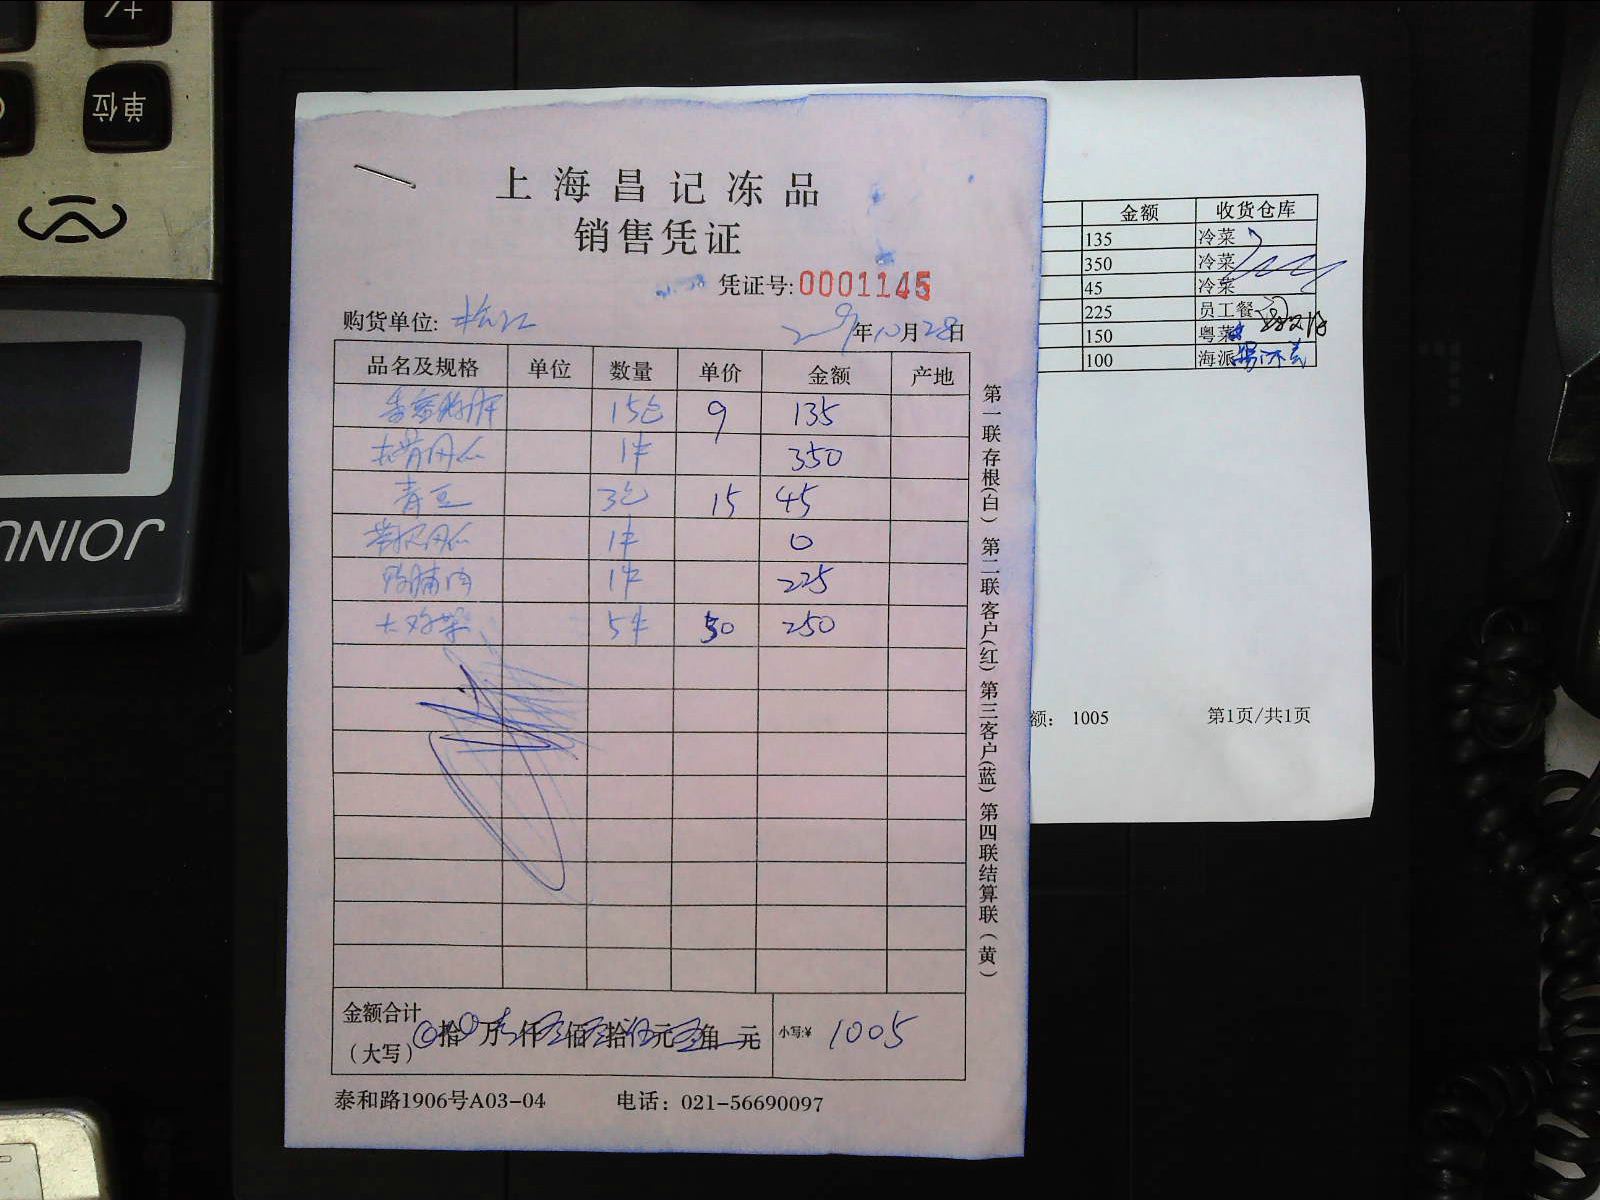 单位
JOINU
上海昌记冻品
销售凭证
凭证号:0001145
购货单位: 松江
年10月28日
品名及规格 单位 数量 单价 金额 产地
15包 9 135
1件 350
青豆 3包 15 45
1件 0
鸡脯肉 1件 225
大鸡架 5件 50 250
金额合计
(大写) 拾 万 仟 佰 拾 元 角 元 小写:¥ 1005
泰和路1906号A03-04 电话: 021-56690097
第一联存根(白) 第二联客户(红) 第三客户(蓝) 第四联结算联(黄)
金额 收货仓库
135 冷菜
350 冷菜
45 冷菜
225 员工餐
150 粤菜
100 海派
额: 1005 第1页/共1页